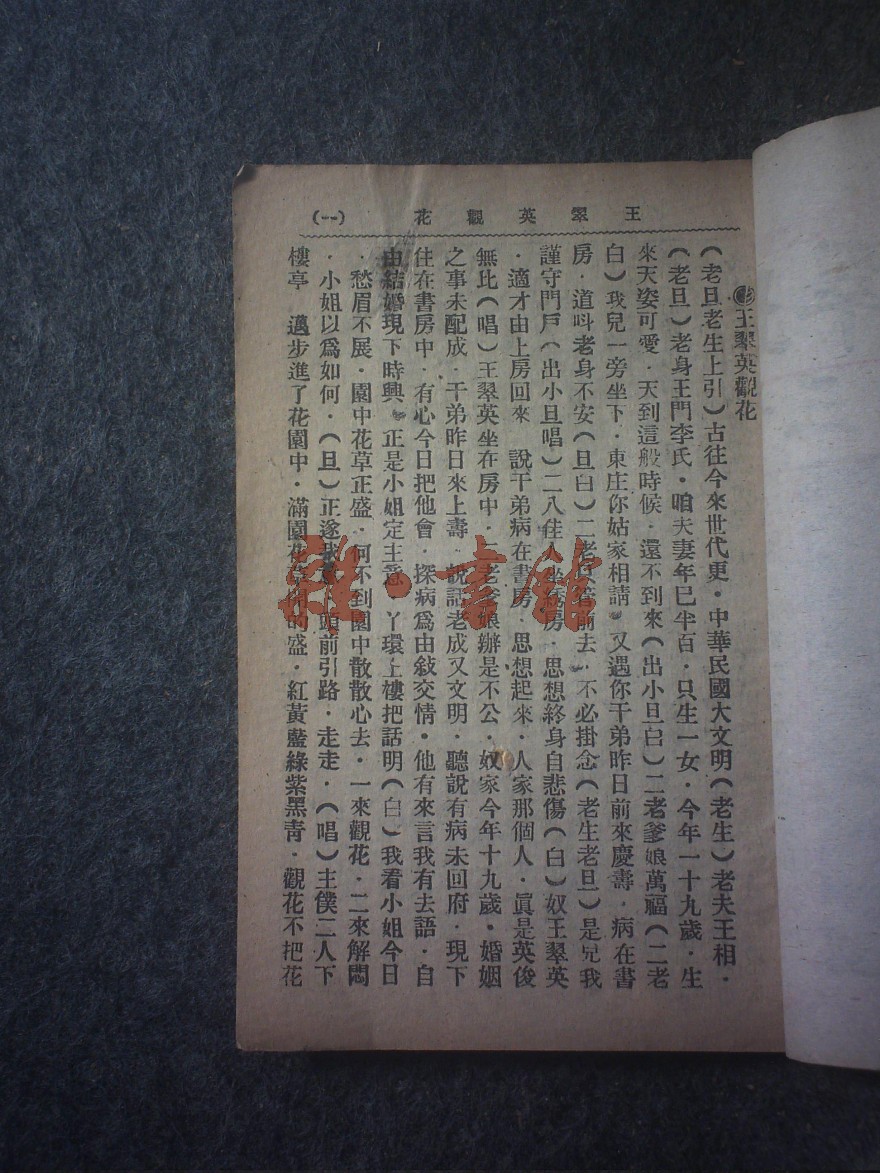 王翠英觀花 (一)
王翠英觀花
(老旦老生上引)古往今來世代更·中華民國大文明(老生)老夫王相·
(老旦)老身王門李氏·咱夫妻年巳半百·只生一女·今年一十九歲·生
來天姿可愛·天到這般時候·還不到來(出小旦白)二老爹娘萬福(二老
白)我兒一旁坐下·東庄你姑家相請·又遇你干弟昨日前來慶壽·病在書
房·道呌老身不安(旦白)二老只管前去·不必掛念(老生老旦)是兒我
謹守門戶(出小旦唱)二八佳人坐綉房·思想終身自悲傷(白)奴王翠英
·適才由上房回來 說干弟病在書房·思想起來·人家那個人·眞是英俊
無比(唱)王翠英坐在房中·二老爹娘辦是不公·奴家今年十九歲·婚姻
之事未配成·干弟昨日來上壽·說話老成又文明·聽說有病未回府·現下
住在書房中·有心今日把他會·探病爲由敍交情·他有來言我有去語·自
由結婚現下時興·正是小姐定主意 丫環上樓把話明(白)我看小姐今日
·愁眉不展·園中花草正盛·何不到園中散散心去·一來觀花·二來解悶
·小姐以爲如何·(旦)正遂我意 頭前引路·走走·(唱)主僕二人下
樓亭 邁步進了花園中·滿園花草開的盛·紅黃藍綠紫黑靑·觀花不把花
雜·書館